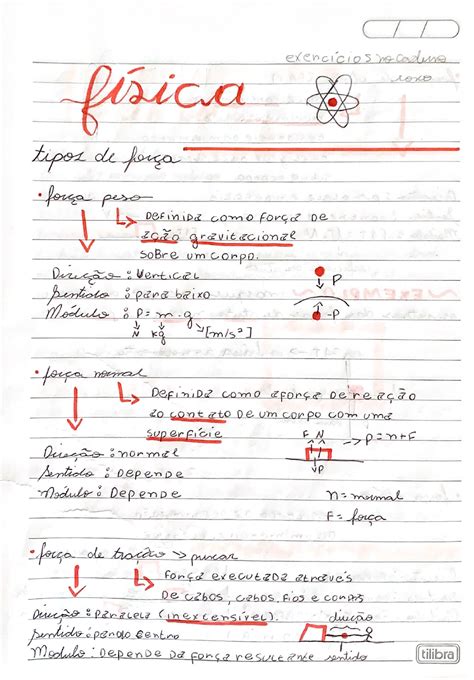 exercícios no caderno
roxo
física
tipos de força
• força peso
↳ Definida como força de
ação gravitacional
sobre um corpo.
Direção: Vertical
Sentido: para baixo
Módulo: P = m . g
N kg [m/s²]
P
-P
• força normal
↳ Definida como a força de reação
ao contato de um corpo com uma
superfície
Direção: normal
Sentido: Depende
Modulo: Depende
F N
-> P = n + F
P
n = normal
F = força
• força de tração -> puxar
↳ Força executada através
De cabos, cabos, fios e cordas
Direção: paralela (inextensível).
Sentido: para o centro
Modulo: Depende da força resultante
direção
sentido
tilibra